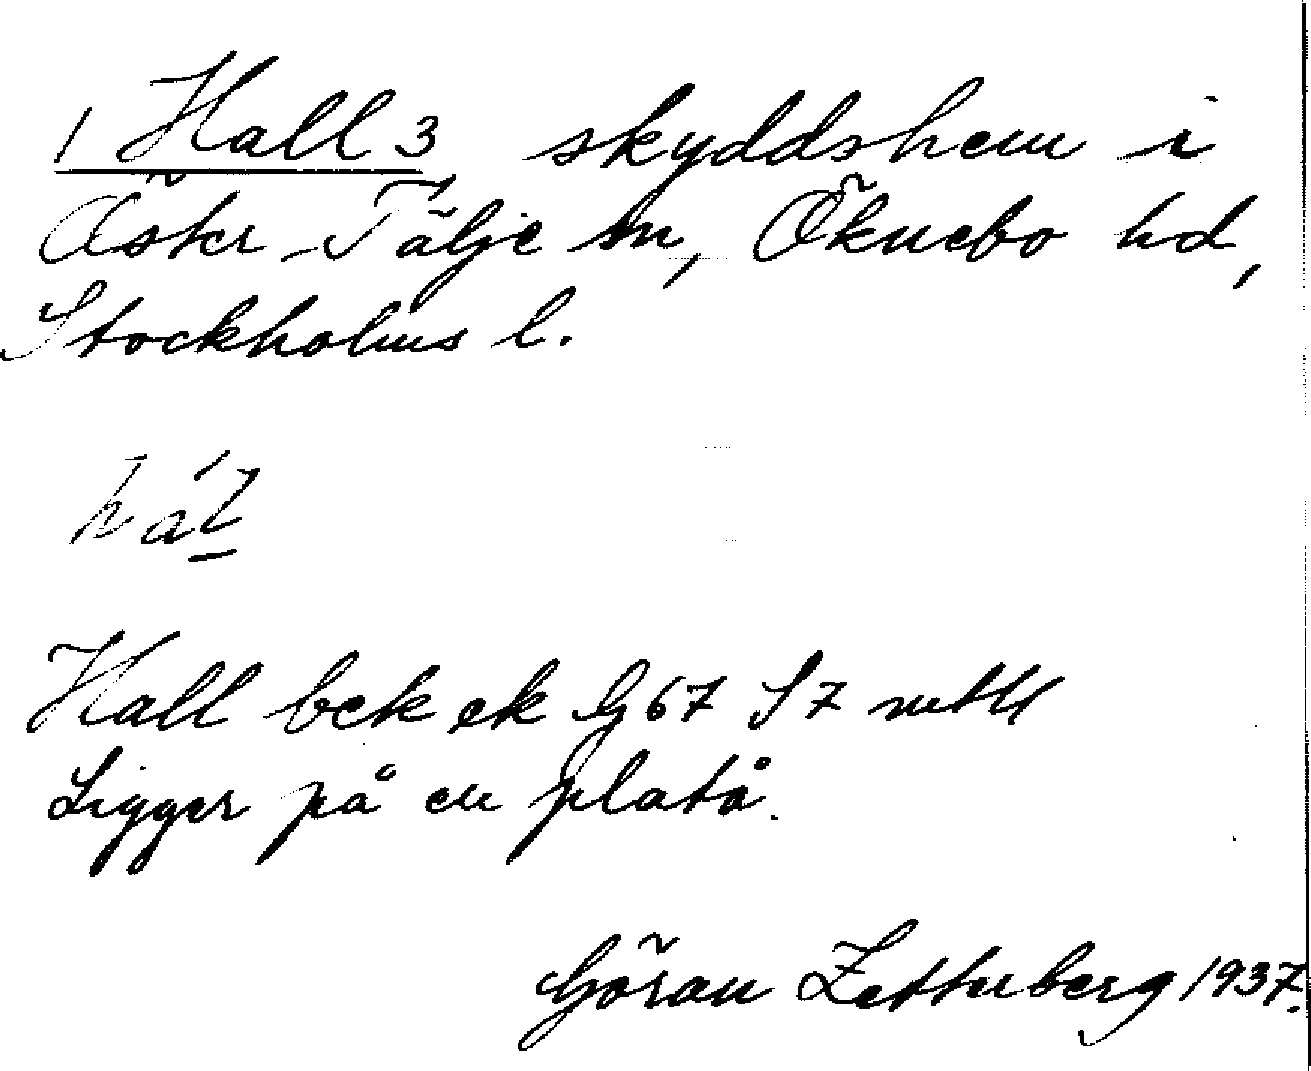 1 Hall 3 skyddshem i
Öster-Tälje sn, Öknebo hd,
Stockholms l.
Hall bek ek G 67 S 7
Ligger på en platå.
Göran Zetterberg 1937.